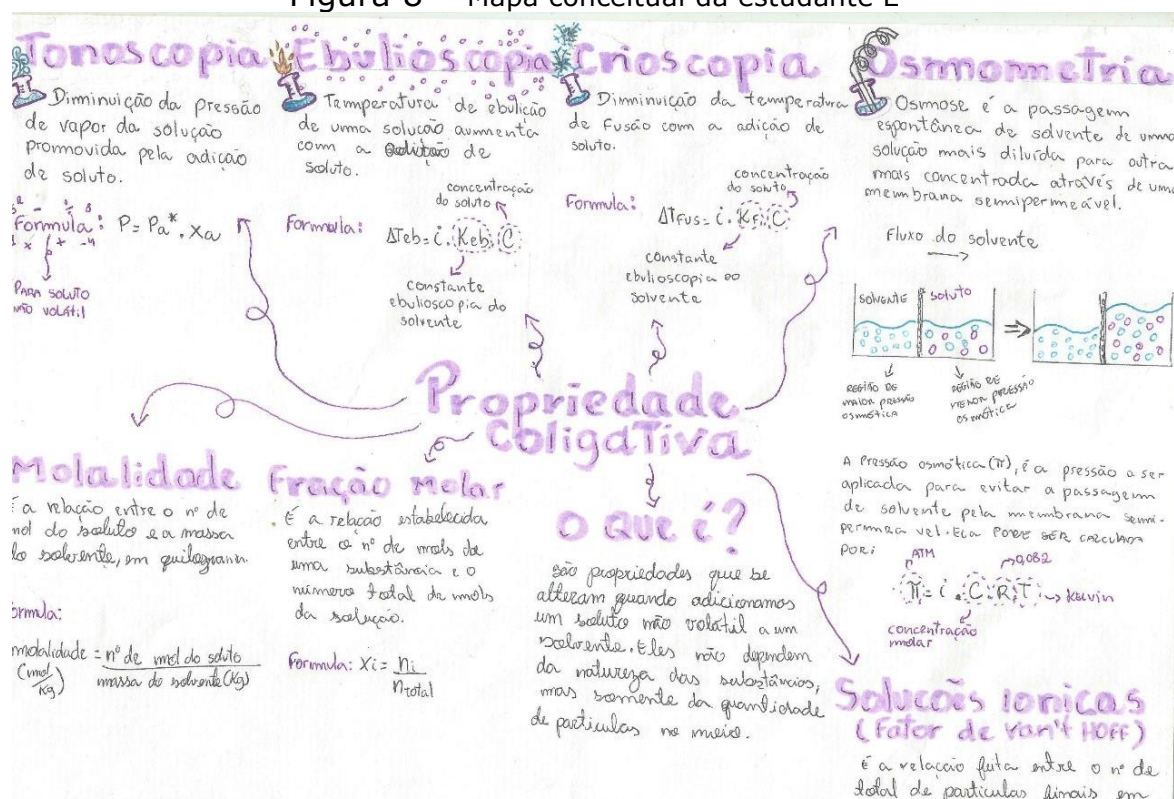 Mapa conceitual da estudante E
Tonoscopia
Diminuição da pressão
de vapor da solução
promovida pela adição
de soluto.
Formula: P = Pa*. Xa
PARA SOLUTO
NÃO VOLÁTIL
Ebulioscopia
Temperatura de ebulição
de uma solução aumenta
com a adição de
soluto.
concentração
do soluto
Formula: ΔTeb = i. Keb. C
constante
ebulioscopia do
solvente
Crioscopia
Diminuição da temperatura
de Fusão com a adição de
soluto.
concentração
do soluto
Formula: ΔTFus = i. KF. C
constante
ebulioscopia do
solvente
Osmometria
Osmose é a passagem
espontânea de solvente de uma
solução mais diluída para outra
mais concentrada através de uma
membrana semipermeável.
Fluxo do solvente
solvente soluto
REGIÃO DE
MAIOR PRESSÃO
OSMÓTICA
REGIÃO DE
MENOR PRESSÃO
OSMÓTICA
A Pressão osmótica (π), é a pressão a ser
aplicada para evitar a passagem
de solvente pela membrana semi-
permeavel. Ela PODE SER CALCULADA
POR:
ATM
0,082
π = i. C. R. T
Kelvin
concentração
molar
Propriedade
Coligativa
Molalidade
É a relação entre o nº de
mol do soluto e a massa
do solvente, em quilograma.
Formula:
molalidade = nº de mol do soluto
(mol/Kg) massa do solvente (Kg)
Fração Molar
É a relação estabelecida
entre o nº de mols de
uma substância e o
número total de mols
da solução.
Formula: Xi = ni
ntotal
O QUE É?
São propriedades que se
alteram quando adicionamos
um soluto não volátil a um
solvente. Eles não dependem
da natureza das substâncias,
mas somente da quantidade
de particulas no meio.
Soluções Ionicas
(Fator de Van't HOFF)
é a relação feita entre o nº de
total de particulas finais em